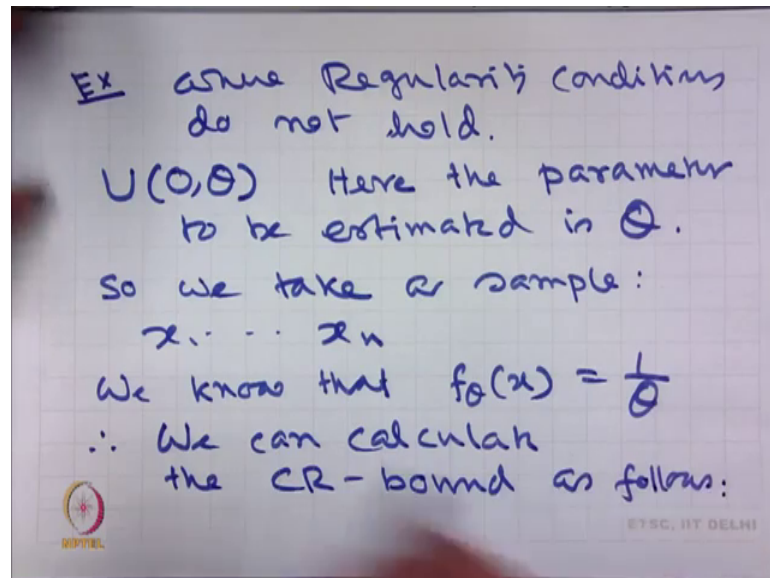 Ex where Regularity conditions
do not hold.
U(0,θ) Here the parameter
to be estimated is θ.
So we take a sample:
x1. . . . xn
We know that fθ(x) = 1/θ
∴ We can calculate
the CR-bound as follows:
NPTEL
ETSC, IIT DELHI